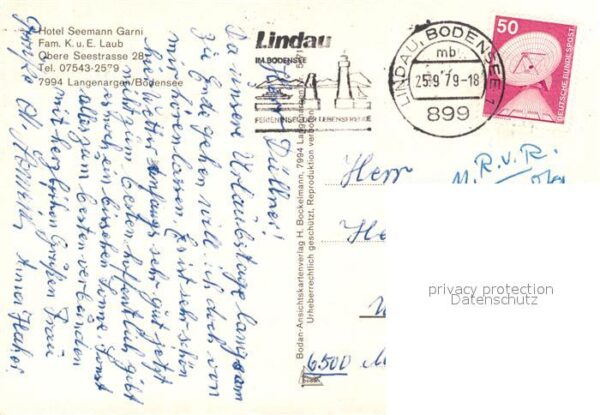 Hotel Seemann Garni
Fam. K. u. E. Laub
Obere Seestrasse 28
Tel. 07543-2579
7994 Langenargen/Bodensee
Lindau
IM BODENSEE
FERIENINSEL DER LEBENSFREUDE
LINDAU, BODENSEE 1
mb
25.9.79-18
899
50
DEUTSCHE BUNDESPOST
Herr Düllner!
Da unsere Urlaubstage langsam
zu Ende gehen will ich doch von
mir hören lassen. Es ist sehr schön
hier Wetter anfangs sehr gut jetzt
hoffentlich gibt
es noch ein bißchen Sonne, sonst
alles zum besten verbunden
mit herzlichen Grüßen Frau
Bodan-Ansichtskartenverlag H. Bockelmann, 7994 Langenargen
Urheberrechtlich geschützt. Reproduktion verboten
Herr
M. R. v. R.
6500 M
privacy protection
Datenschutz